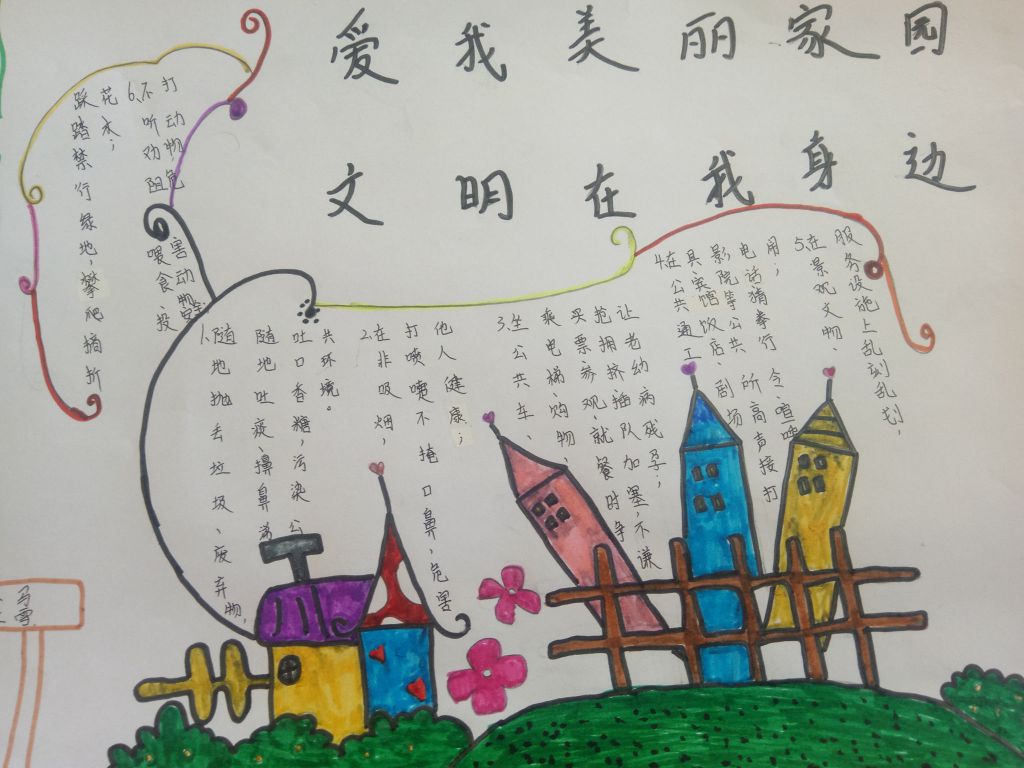 爱我美丽家园
文明在我身边
1.随地抛丢垃圾、废弃物,
随地吐痰、擤鼻涕
吐口香糖,污染公
共环境。
2.在非吸烟,
打喷嚏不掩口鼻,危害
他人健康;
3.坐公共车、
乘电梯、购物、
买票参观、就餐时争
抢拥挤插队加塞,不谦
让老幼病残孕;
4.在公共通工
具、宾馆饭店、剧场
影院等公共所高声接打
电话猜拳行令、喧哗
用;
5.在景观文物、
服务设施上乱刻乱划,
踩踏禁行绿地,攀爬摘折
花木;
6.不听劝阻喂食、投
打动物危害动物